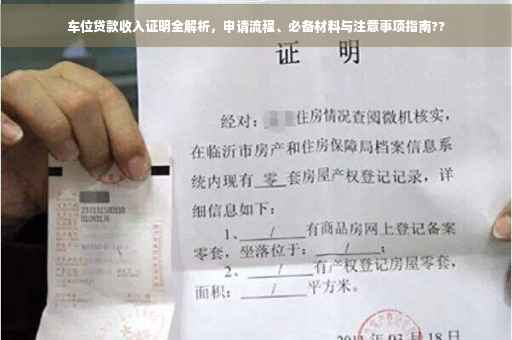 车位贷款收入证明全解析，申请流程、必备材料与注意事项指南??
证 明
经对：住房情况查阅微机核实，
在临沂市房产和住房保障局档案信息系
统内现有 零 套房屋产权登记记录，详
细信息如下：
1、 / 有商品房网上登记备案
零套，坐落位于： / ；
2、 / 有产权登记房屋零套，
面积： / 平方米。
03 月 18 日